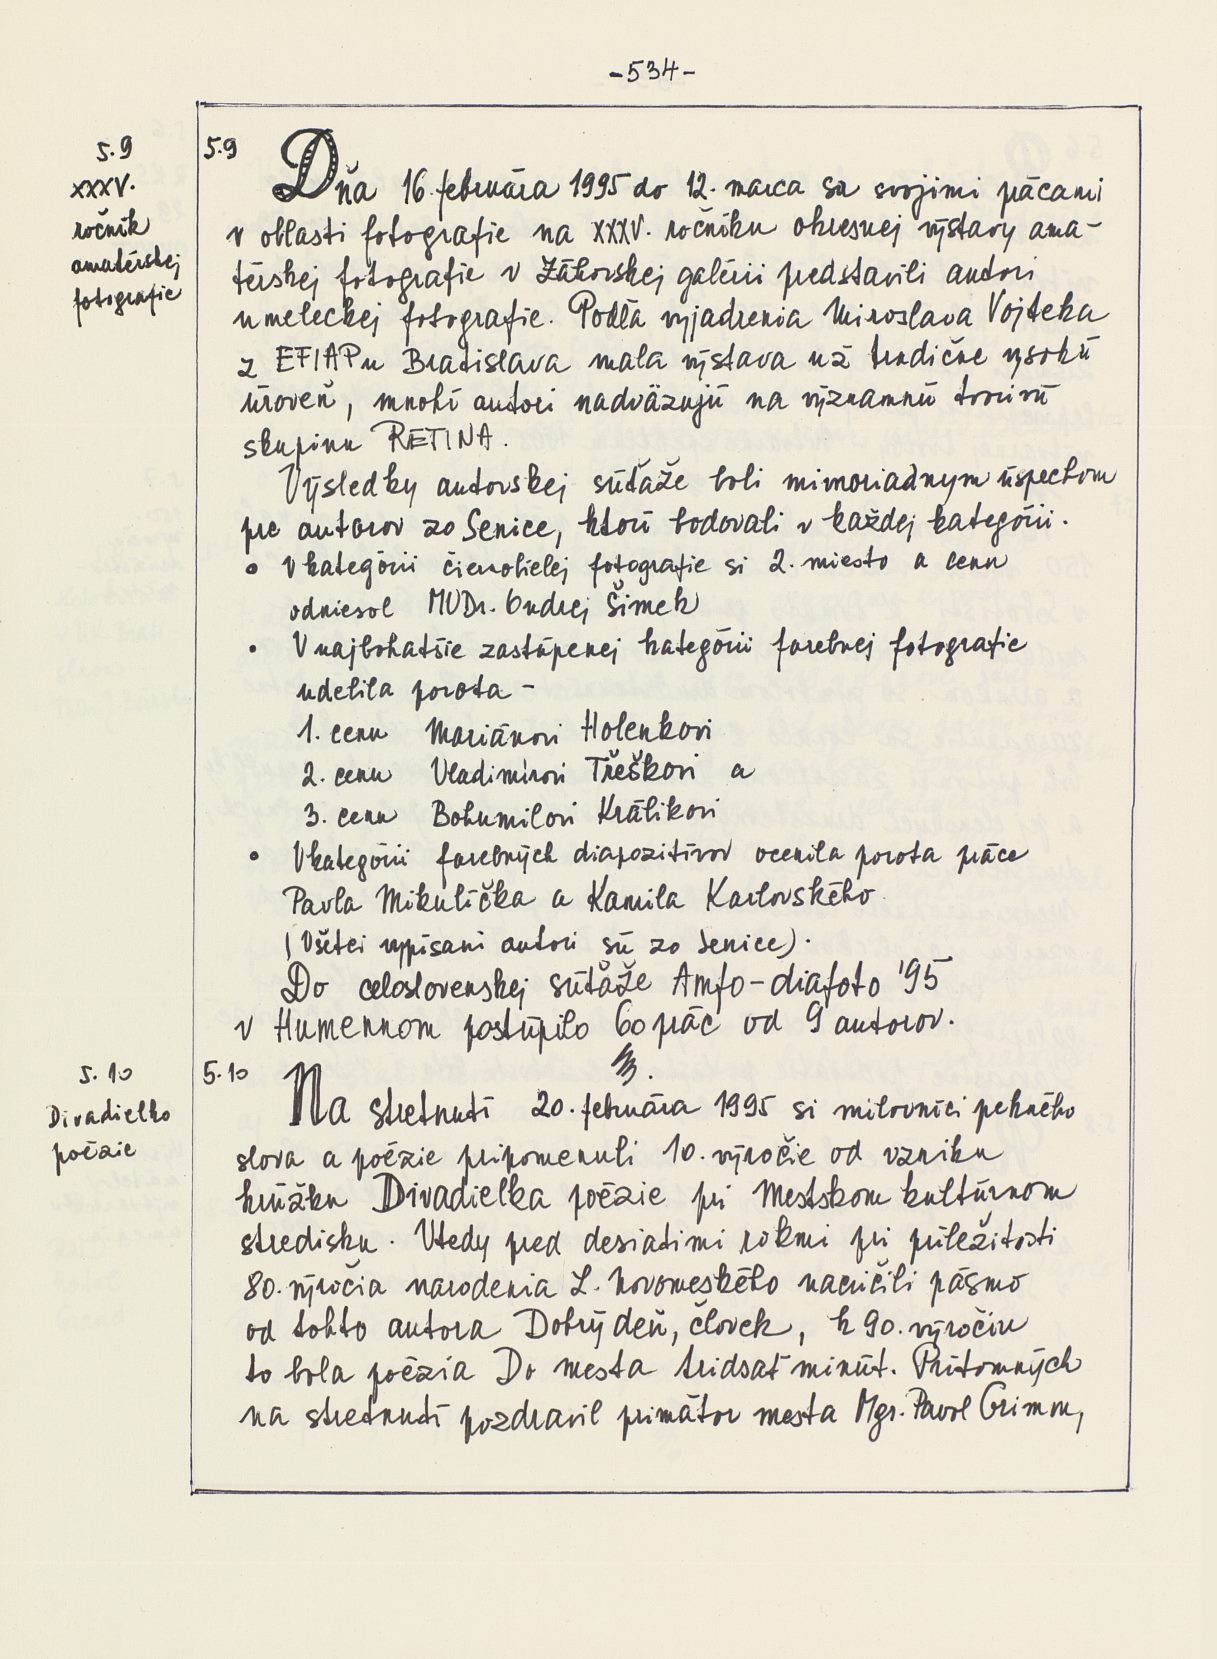 -534-
5.9
XXXV.
ročník
amatérskej
fotografie
5.9 Dňa 16. februára 1995 do 12. marca sa svojimi prácami
v oblasti fotografie na XXXV. ročníku okresnej výstavy ama-
térskej fotografie v Záhorskej galérii predstavili autori
umeleckej fotografie. Podľa vyjadrenia Miroslava Vojteka
z EFIAPu Bratislava mala výstava už tradične vysokú
úroveň, mnohí autori nadväzujú na významnú tvorivú
skupinu RETINA.
Výsledky autorskej súťaže boli mimoriadnym úspechom
pre autorov zo Senice, ktorí bodovali v každej kategórii.
• V kategórii čiernobielej fotografie si 2. miesto a cenu
odniesol MUDr. Ondrej Šimek
• V najbohatšie zastúpenej kategórii farebnej fotografie
udelila porota -
1. cenu Mariánovi Holenkovi
2. cenu Vladimírovi Třeškovi a
3. cenu Bohumilovi Králikovi
• V kategórii farebných diapozitívov ocenila porota práce
Pavla Mikulíčka a Kamila Karlovského
(Všetci vypísaní autori sú zo Senice).
Do celoslovenskej súťaže Amfo-diafoto '95
v Humennom postúpilo 60 prác od 9 autorov.
5.10
Divadielko
poézie
5.10 Na stretnutí 20. februára 1995 si milovníci pekného
slova a poézie pripomenuli 10. výročie od vzniku
krúžku Divadielka poézie pri Mestskom kultúrnom
stredisku. Vtedy pred desiatimi rokmi pri príležitosti
80. výročia narodenia L. Novomeského nacvičili pásmo
od tohto autora Dobrý deň, človek, k 90. výročiu
to bola poézia Do mesta tridsať minút. Prítomných
na stretnutí pozdravil primátor mesta Mgr. Pavol Grimm,